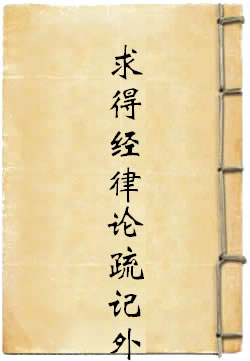 求得经律论疏记外